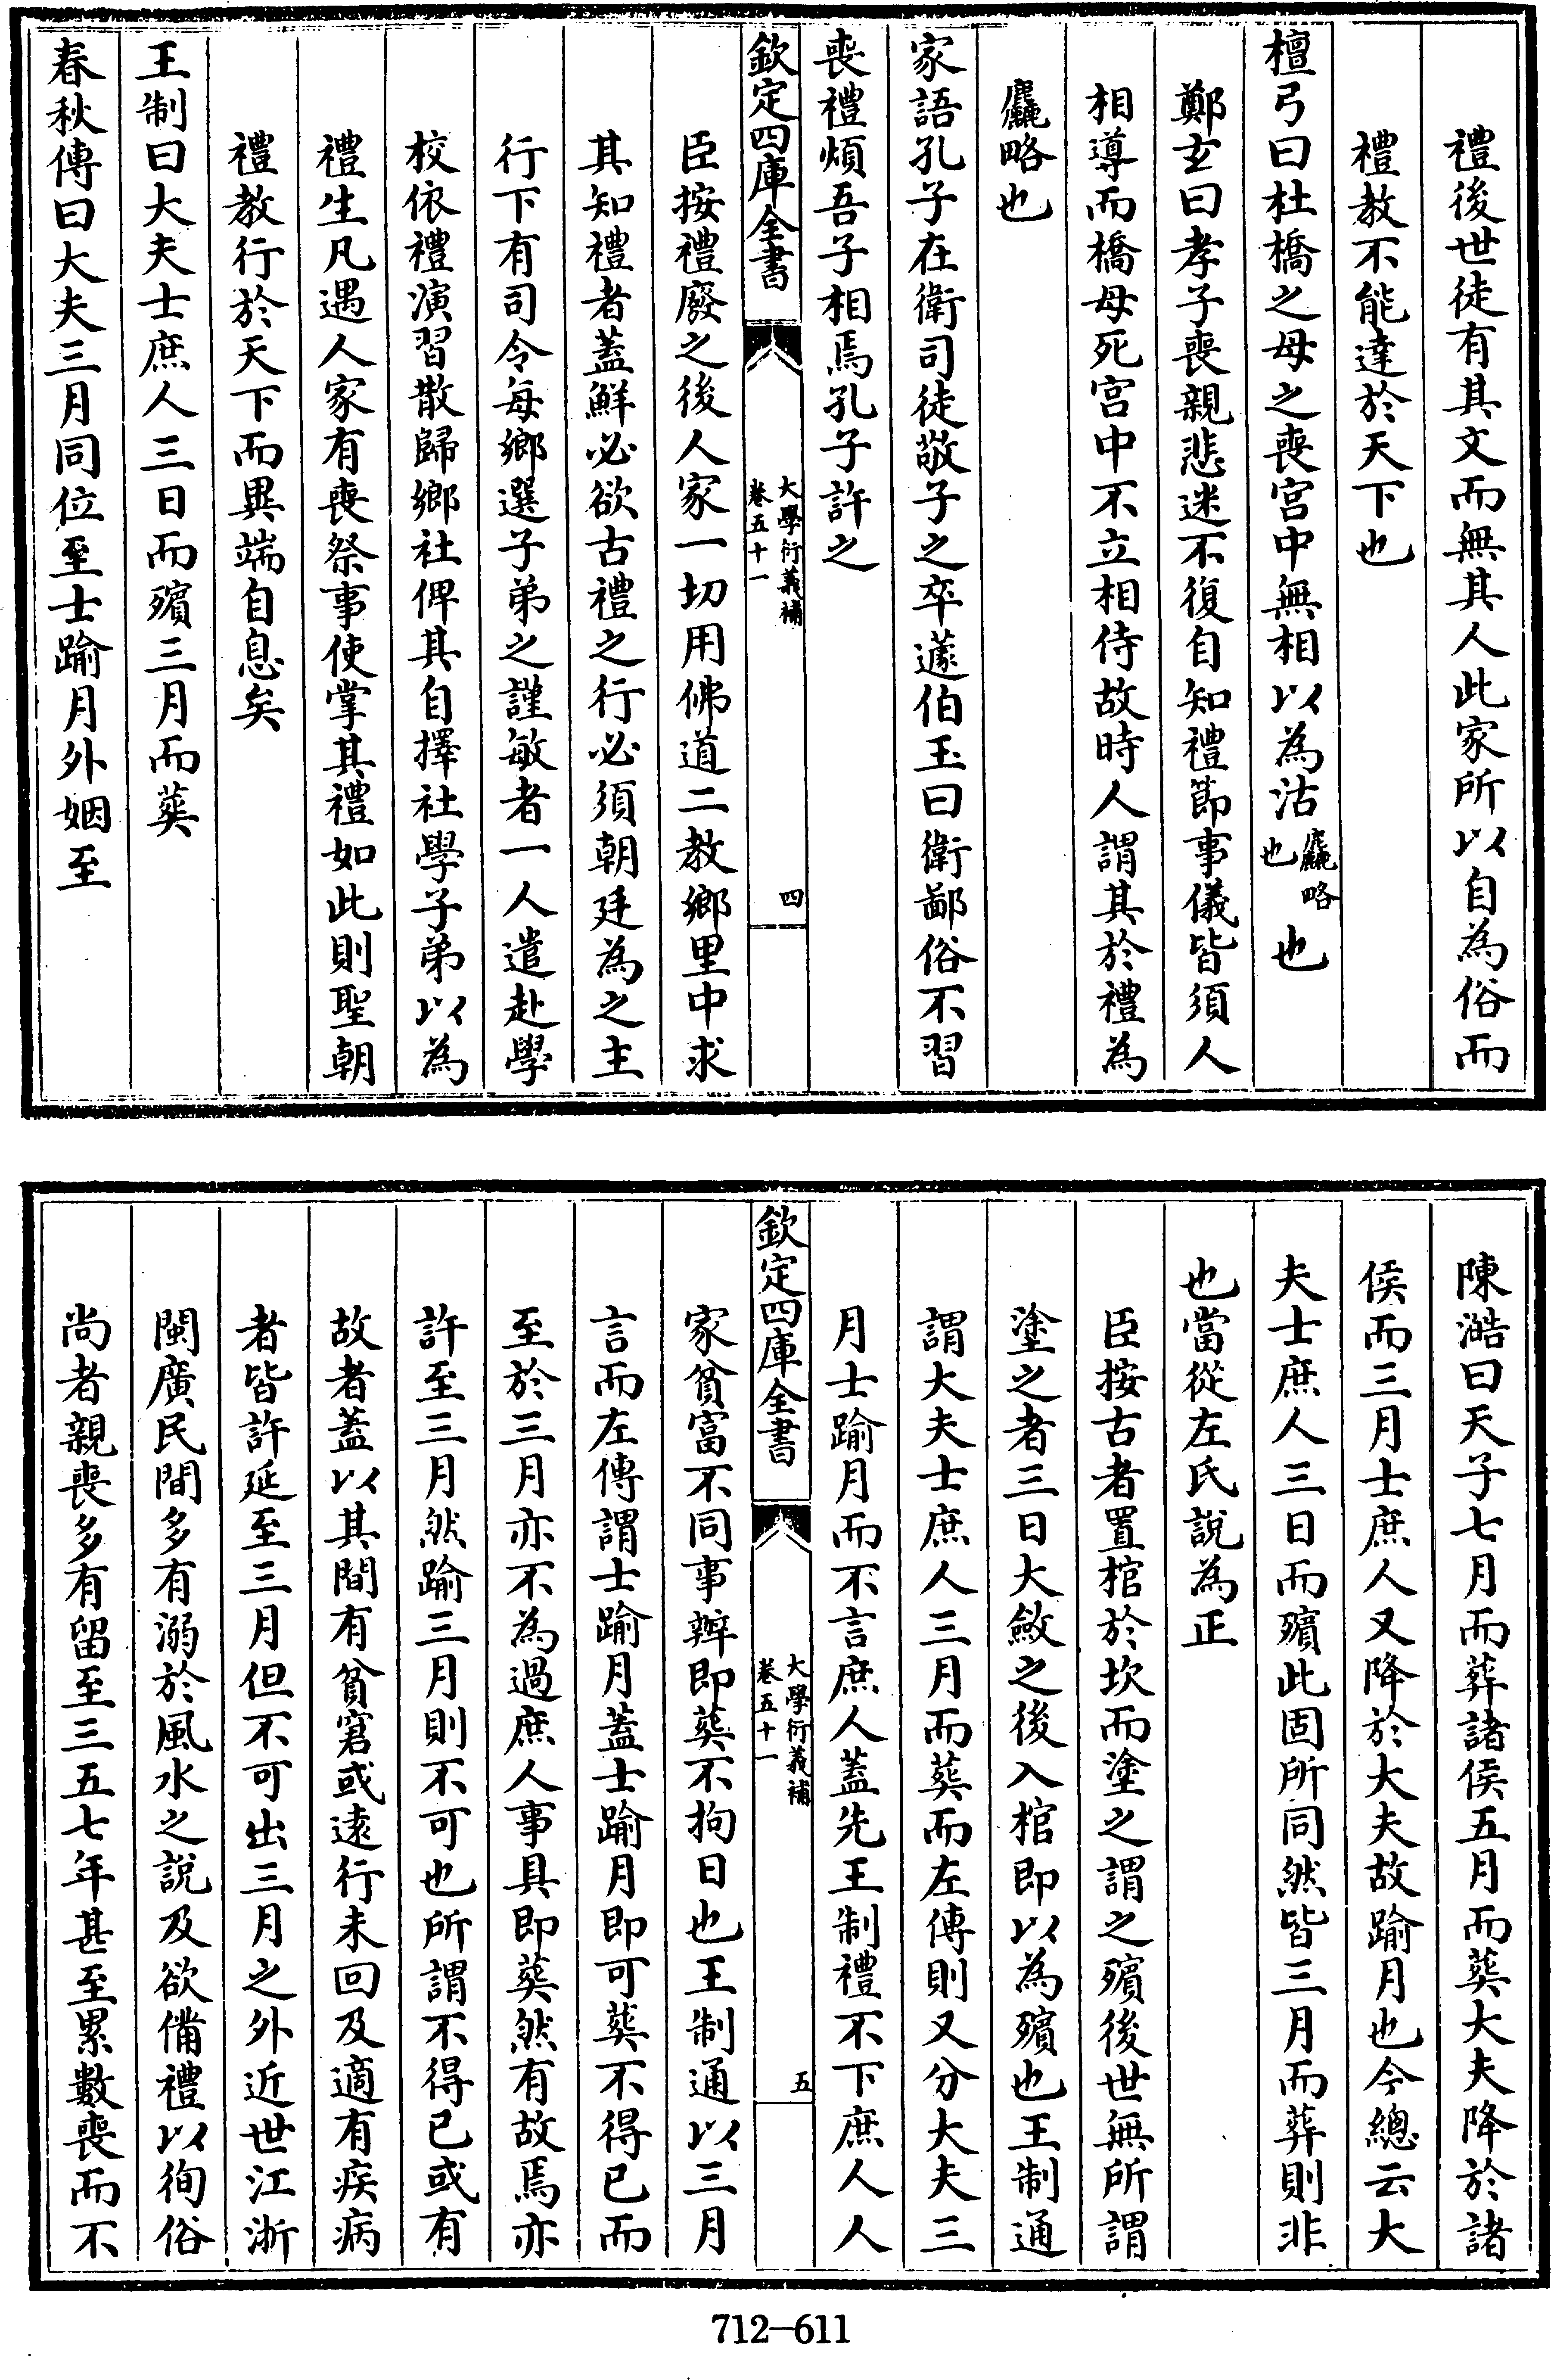 禮後世徒有其文而無其人此家所以自為俗而
禮教不能達於天下也
檀弓曰杜橋之母之喪宫中無相以為沽麤略也也
鄭玄曰孝子喪親悲迷不復自知禮節事儀皆須人
相導而橋母死宫中不立相侍故時人謂其於禮為
麤略也
家語孔子在衛司徒敬子之卒蘧伯玉曰衛鄙俗不習
喪禮煩吾子相焉孔子許之
欽定四庫全書
大學衍義補
卷五十一
四
臣按禮廢之後人家一切用佛道二教鄉里中求
其知禮者蓋鮮必欲古禮之行必須朝廷為之主
行下有司令每鄉選子弟之謹敏者一人遣赴學
校依禮演習散歸鄉社俾其自擇社學子弟以為
禮生凡遇人家有喪祭事使掌其禮如此則聖朝
禮教行於天下而異端自息矣
王制曰大夫士庶人三日而殯三月而葬
春秋傳曰大夫三月同位至士踰月外姻至
陳澔曰天子七月而葬諸侯五月而葬大夫降於諸
侯而三月士庶人又降於大夫故踰月也今總云大
夫士庶人三日而殯此固所同然皆三月而葬則非
也當從左氏說為正
臣按古者置棺於坎而塗之謂之殯後世無所謂
塗之者三日大斂之後入棺即以為殯也王制通
謂大夫士庶人三月而葬而左傳則又分大夫三
月士踰月而不言庶人蓋先王制禮不下庶人人
欽定四庫全書
大學衍義補
卷五十一
五
家貧富不同事辦即葬不拘日也王制通以三月
言而左傳謂士踰月蓋士踰月即可葬不得已而
至於三月亦不為過庶人事具即葬然有故焉亦
許至三月然踰三月則不可也所謂不得已或有
故者蓋以其間有貧窘或遠行未回及適有疾病
者皆許延至三月但不可出三月之外近世江浙
閩廣民間多有溺於風水之說及欲備禮以徇俗
尚者親喪多有留至三五七年甚至累數喪而不
712-611